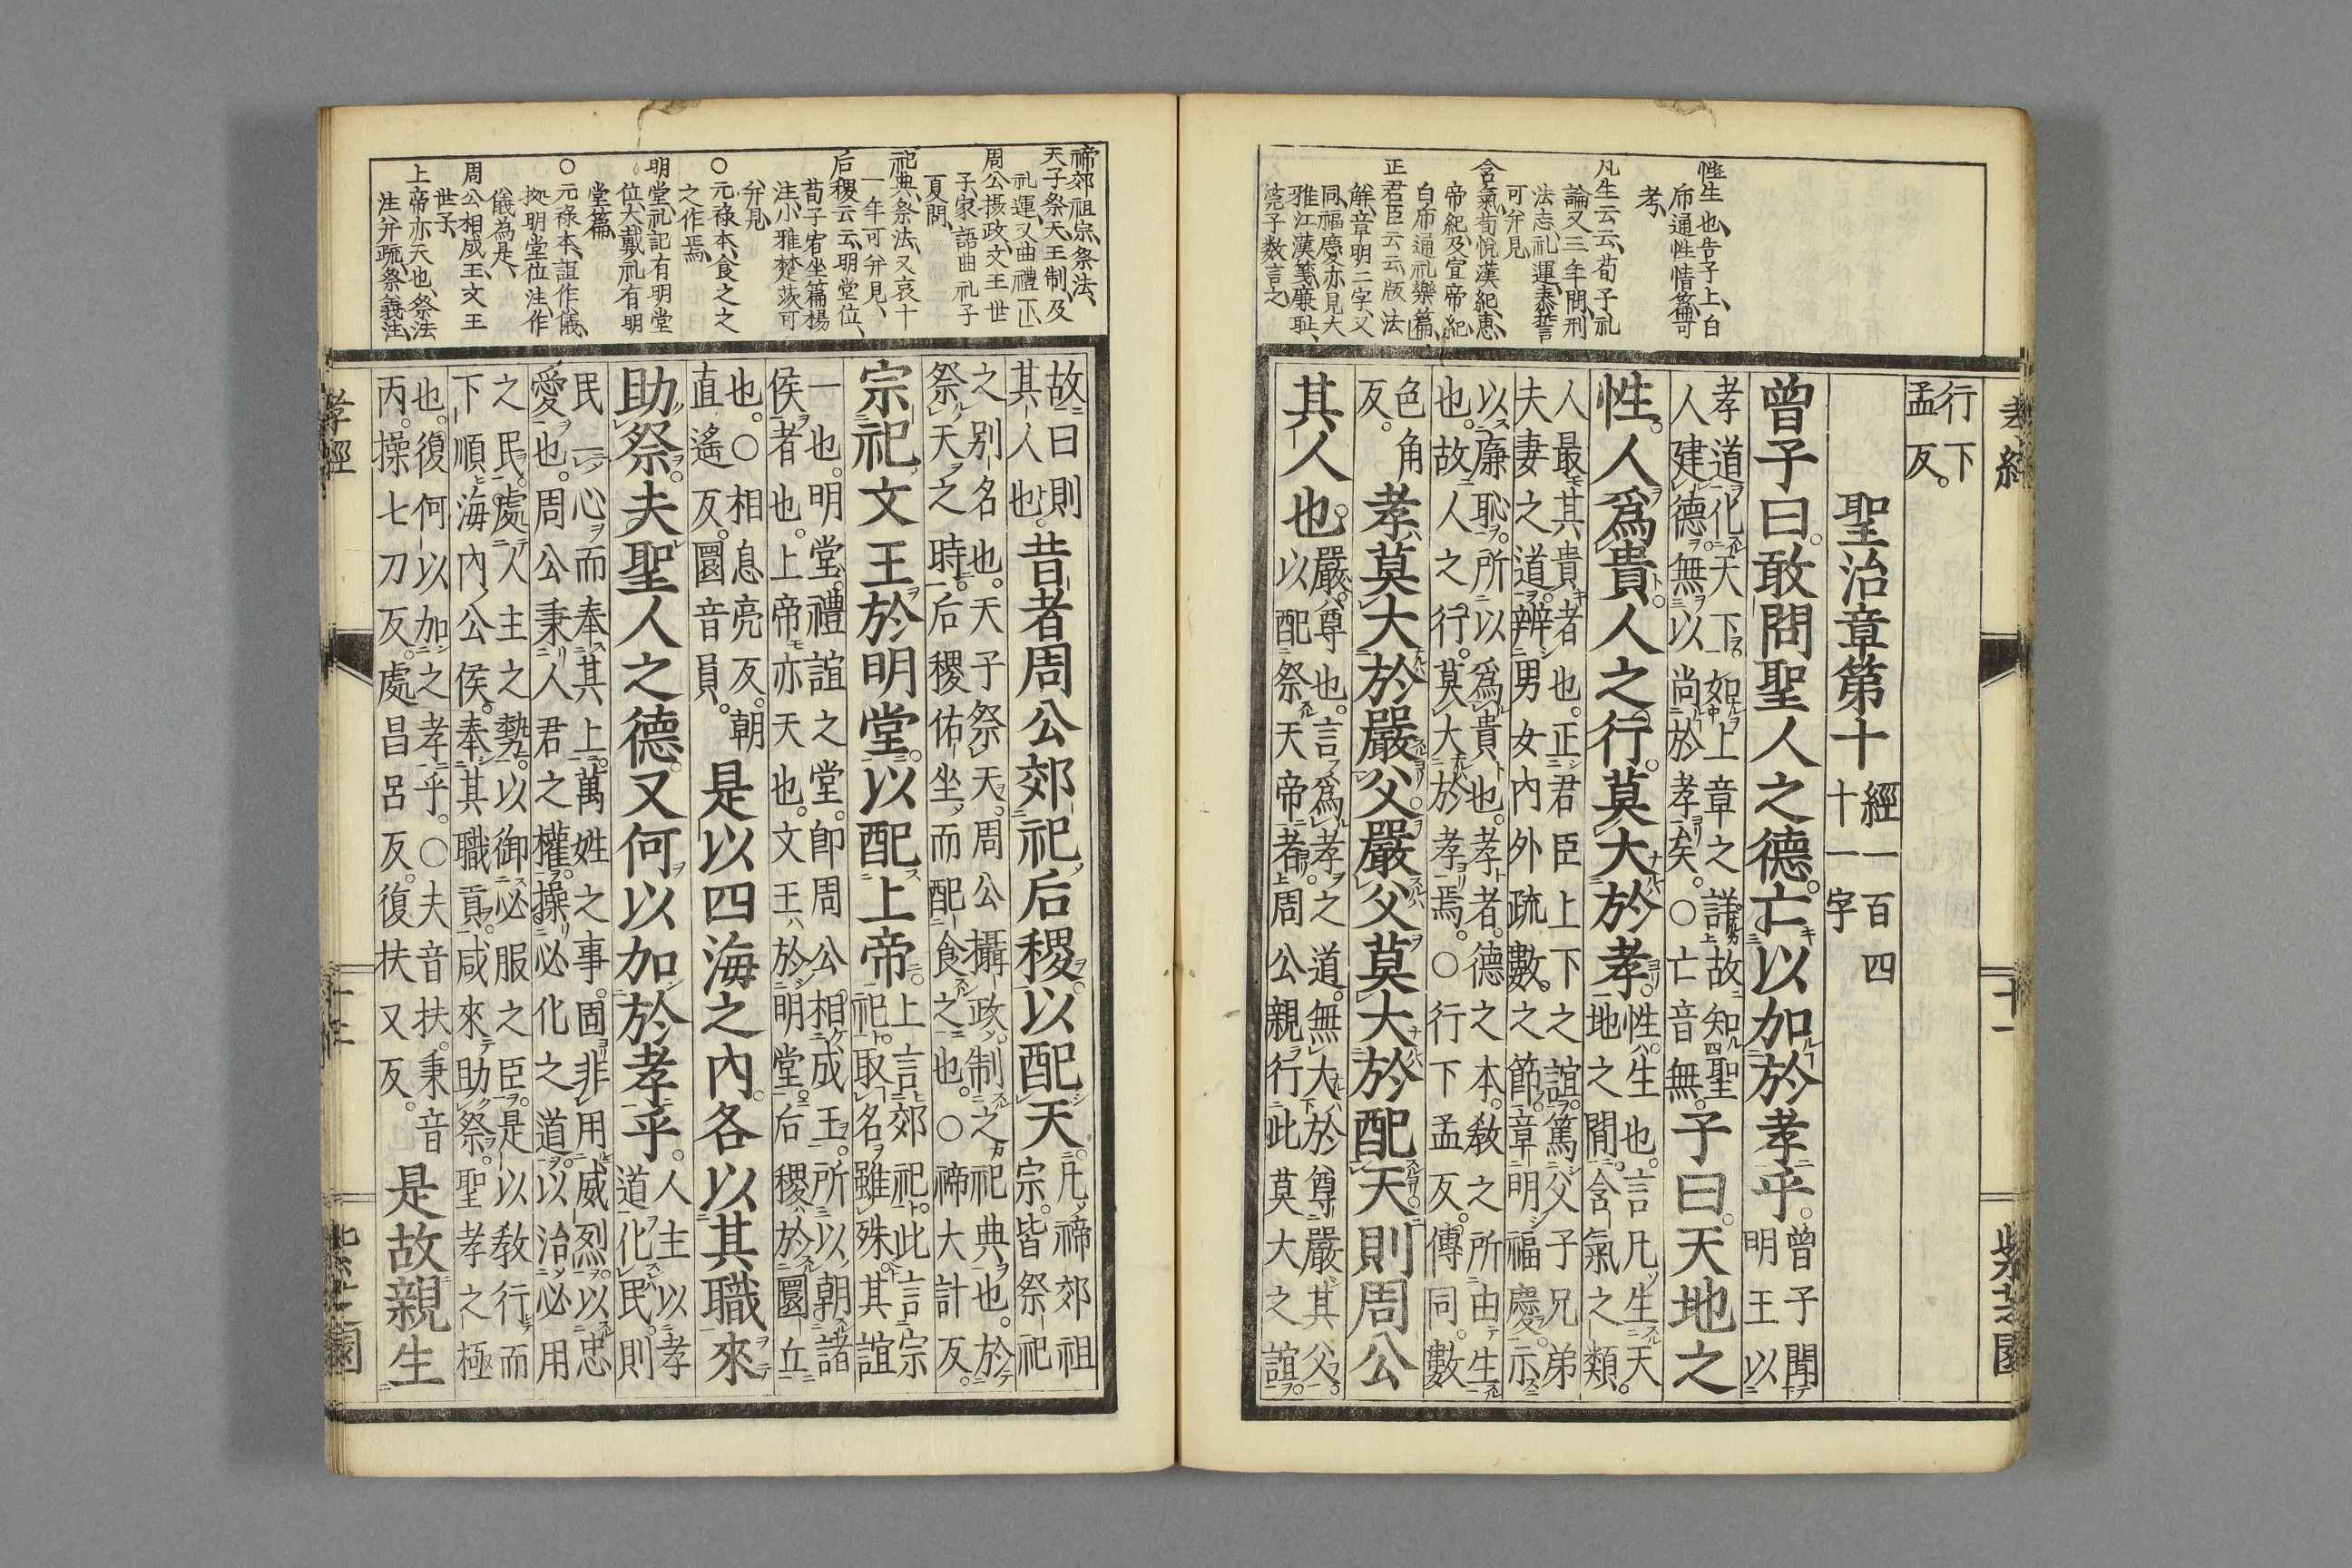 孝經
十一
紫芝園
性生也、告子上、白
乕通性情篇可
考、
凡生云云、荀子礼
論、又三年問、刑
法志、礼運、泰誓
可幷見、
含氣、荀悅漢紀、惠
帝紀、及宣帝紀
白乕通礼樂篇、
正君臣云云、版法
解、章明二字、又
同、福慶亦見大
雅江漢箋、廉耻、
筦子数言之、
行下
孟反。
聖治章第十 經一百四
十一字
曾子曰。敢問聖人之德。亡以加於孝乎。曾子聞
明王以
孝道化天下。如上章之詳。故知聖
人建德。無以尚於孝矣。○亡音無。子曰。天地之
性。人爲貴。人之行。莫大於孝。性。生也。言凡生天
地之閒。含氣之類。
人最其貴者也。正君臣上下之誼。篤父子兄弟
夫妻之道。辨男女內外疏數。之節。章明福慶。示
以廉恥。所以爲貴也。孝者。德之本。敎之所由生
也。故人之行。莫大於孝焉。○行下孟反。傳同。數
色角
反。孝莫大於嚴父。嚴父莫大於配天。則周公
其人也。嚴。尊也。言爲孝之道。無大於尊嚴其父。
以配祭天帝者。周公親行此莫大之誼。
禘郊祖宗、祭法、
天子祭天、王制、及
礼運、又曲禮下、
周公摂政、文王世
子、家語曲礼子
夏問、
祀典、祭法、又哀十
一年可幷見、
后稷云云、明堂位、
荀子宥坐篇楊
注、小雅楚茨可
幷見、
○元祿本、食之之
之作焉、
明堂、礼記有明堂
位、大戴礼有明
堂篇、
○元祿本、誼作儀、
拠明堂位注、作
儀為是、
周公相成王、文王
世子、
上帝亦天也、祭法
注幷疏、祭義注、
故曰則
其人也。昔者周公郊祀后稷。以配天。凡禘郊祖
宗。皆祭祀
之別名也。天子祭天。周公攝政。制之祀典也。於
祭天之時。后稷佑坐。而配食之也。○禘大計反。
宗祀文王於明堂。以配上帝。上言郊祀。此言宗
祀。取名雖殊。其誼
一也。明堂。禮誼之堂。卽周公相成王。所以朝諸
侯者也。上帝亦天也。文王於明堂。后稷於圜丘
也。○相息亮反。朝
直遙反。圜音員。是以四海之內。各以其職來
助祭。夫聖人之德。又何以加於孝乎。人主以孝
道化民。則
民一心而奉其上。萬姓之事。固非用威烈。以忠
愛也。周公秉人君之權。操必化之道。以治必用
之民。處人主之勢。以御必服之臣。是以敎行而
下順。海內公侯。奉其職貢。咸來助祭。聖孝之極
也。復何以加之孝乎。○夫音扶。秉音
丙。操七刀反。處昌呂反。復扶又反。是故親生
孝經
紫芝園